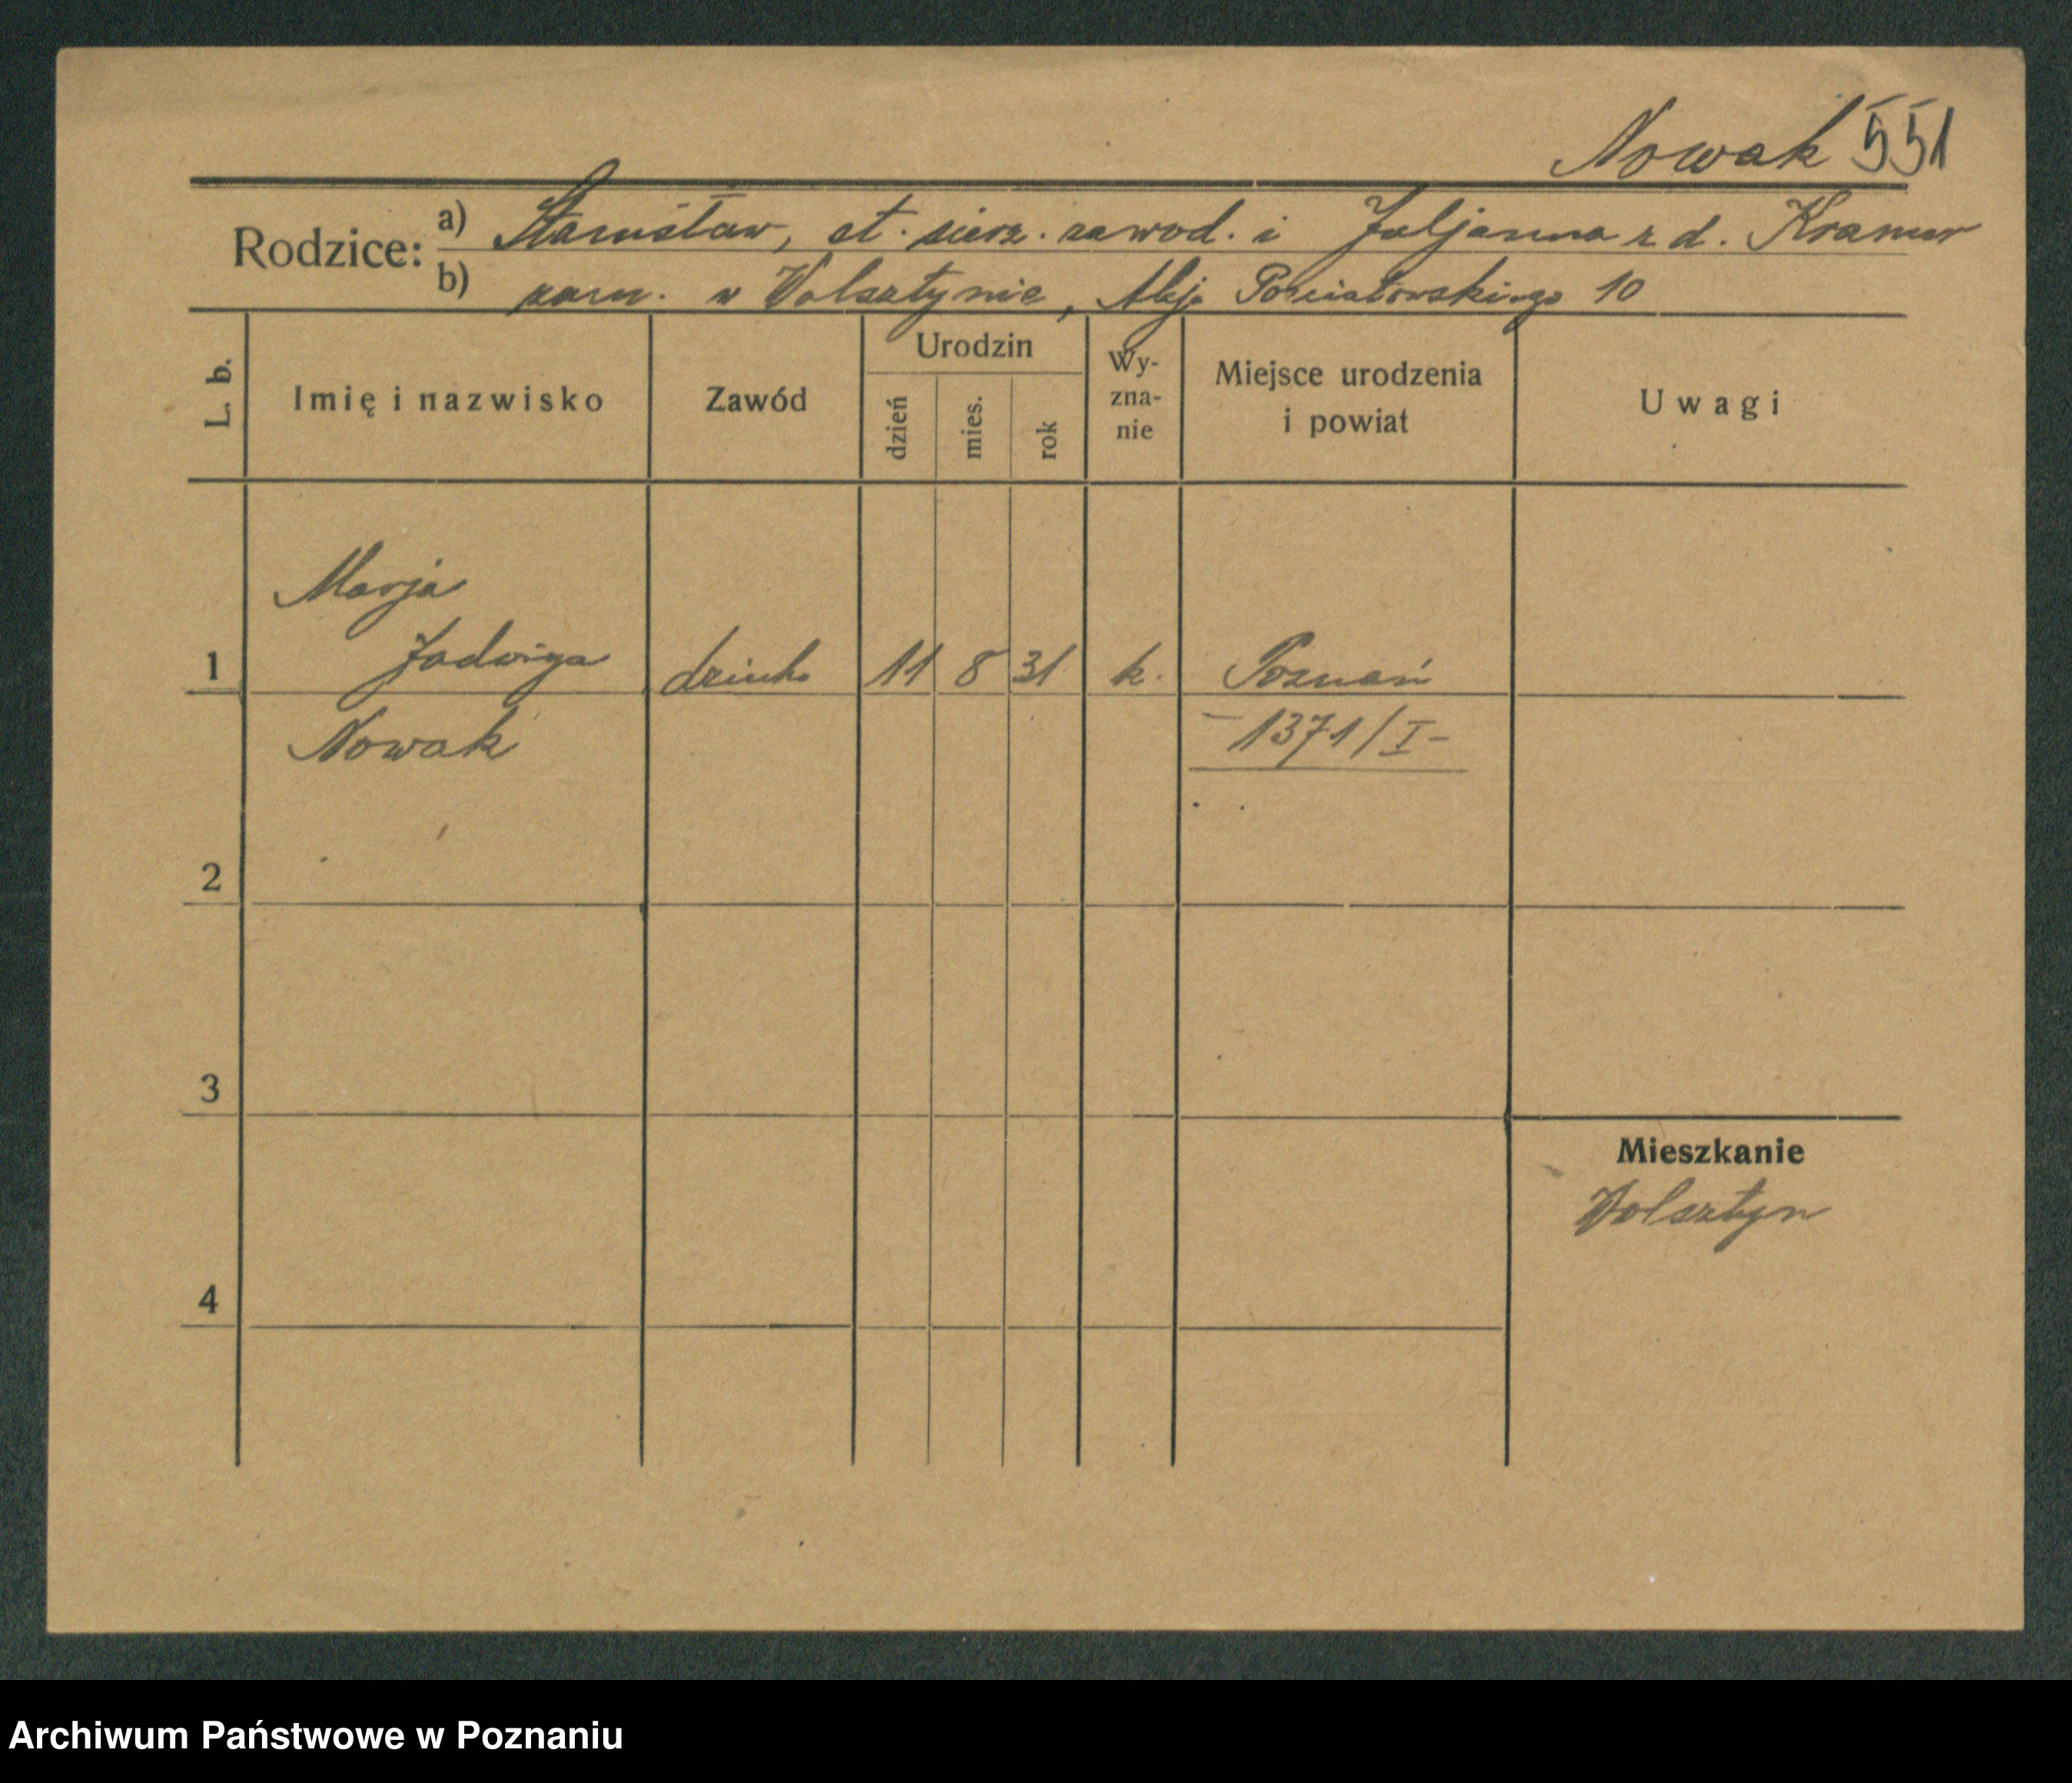 Nowak 551
Rodzice: a) Stanisław, st. sierż. zawod. i Juljanna z d. Kramer
b) zam. w Wolsztynie, Aleja Poniatowskiego 10
L. b. Imię i nazwisko Zawód Urodzin dzień mies. rok Wy- zna- nie Miejsce urodzenia i powiat Uwagi
Marja
1 Jadwiga dziecko 11 8 31 k. Poznań
Nowak - 1371/I -
2
3
Mieszkanie
Wolsztyn
4
Archiwum Państwowe w Poznaniu